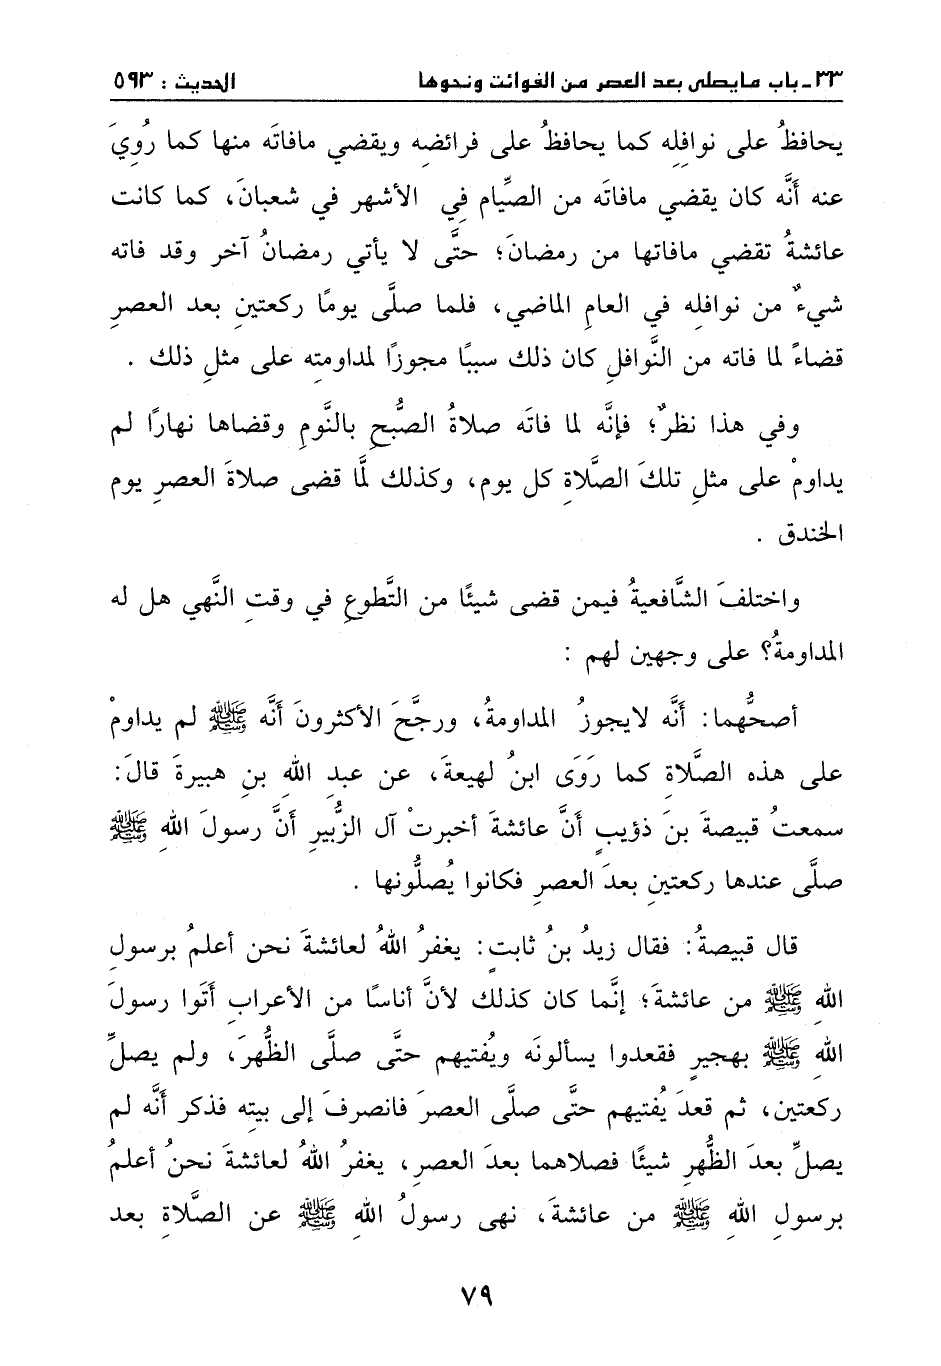 ٣٣ـ باب مايصلى بعد العصر من الفوائت ونحوها الحديث : ٥٩٣
يحافظُ على نوافِلِه كما يحافظُ على فرائضِه ويقضي مافاتَه منها كما رُوِيَ
عنه أنَّه كان يقضي مافاتَه من الصِّيام فِي الأشهر في شعبانَ، كما كانت
عائشةُ تقضي مافاتها من رمضانَ؛ حتَّى لا يأتي رمضانُ آخر وقد فاته
شيءٌ من نوافلِه في العامِ الماضي، فلما صلَّى يومًا ركعتينِ بعد العصرِ
قضاءً لما فاته من النَّوافلِ كان ذلك سببًا مجوزًا لمداومتِه على مثلِ ذلك .
وفي هذا نظرٌ؛ فإنَّه لما فاتَه صلاةُ الصُّبحِ بالنَّومِ وقضاها نهارًا لم
يداومْ على مثلِ تلكَ الصَّلاةِ كل يوم، وكذلك لمَّا قضى صلاةَ العصرِ يوم
الخندق .
واختلفَ الشَّافعيةُ فيمن قضى شيئًا من التَّطوعِ في وقتِ النَّهي هل له
المداومةُ؟ على وجهين لهم :
أصحُّهما: أنَّه لايجوزُ المداومةُ، ورجَّحَ الأكثرونَ أنَّه ﷺ لم يداومْ
على هذه الصَّلاةِ كما رَوَى ابنُ لهيعةَ، عن عبدِ اللهِ بنِ هبيرةَ قالَ:
سمعتُ قبيصةَ بنَ ذؤيبٍ أنَّ عائشةَ أخبرتْ آل الزُّبيرِ أنَّ رسولَ اللهِ ﷺ
صلَّى عندها ركعتينِ بعدَ العصرِ فكانوا يُصلُّونها .
قال قبيصةُ: فقال زيدُ بنُ ثابتٍ: يغفرُ اللهُ لعائشةَ نحن أعلمُ برسولِ
اللهِ ﷺ من عائشةَ؛ إنَّما كان كذلك لأنَّ أناسًا من الأعرابِ أتَوا رسولَ
اللهِ ﷺ بهجيرٍ فقعدوا يسألونَه ويُفتيهم حتَّى صلَّى الظُّهرَ، ولم يصلِّ
ركعتين، ثم قعدَ يُفتيهم حتَّى صلَّى العصرَ فانصرفَ إلى بيتِه فذكر أنَّه لم
يصلِّ بعدَ الظُّهرِ شيئًا فصلاهما بعدَ العصرِ، يغفرُ اللهُ لعائشةَ نحنُ أعلمُ
برسولِ اللهِ ﷺ من عائشةَ، نهى رسولُ اللهِ ﷺ عن الصَّلاةِ بعد
٧٩